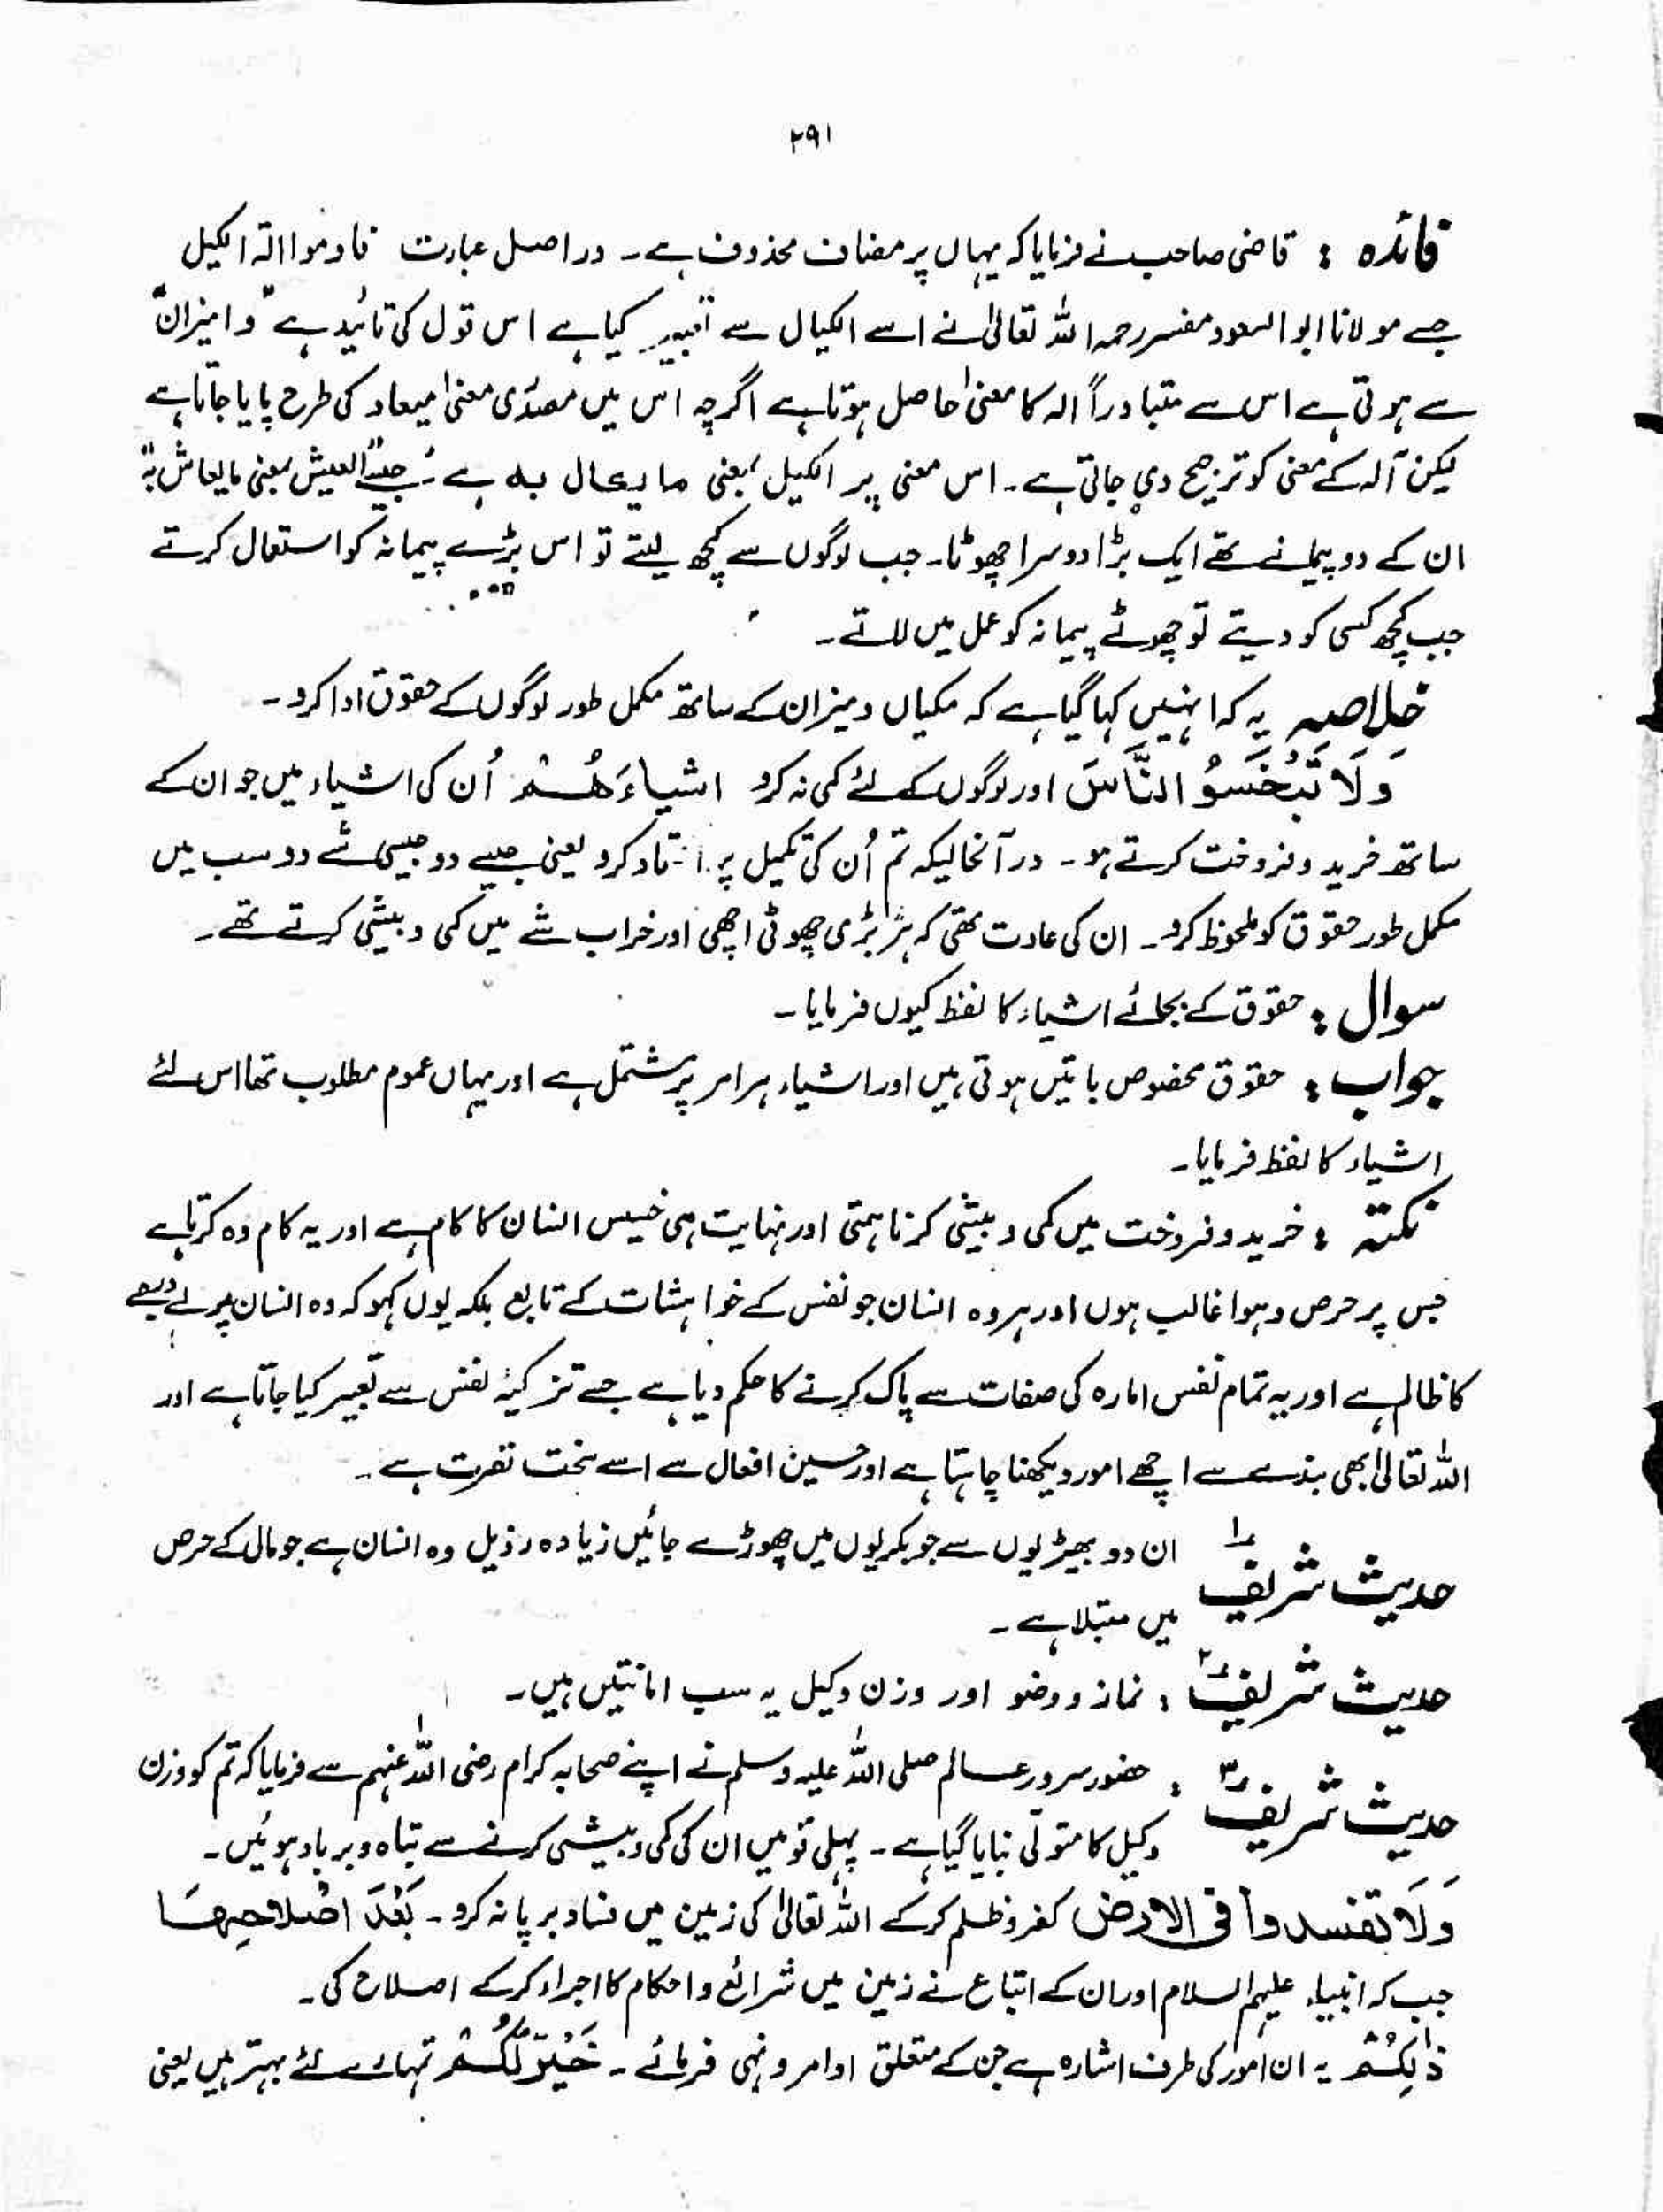 ۲۹۱
فائدہ : قاضی صاحب نے فرمایا کہ یہاں پر مضاف محذوف ہے۔ دراصل عبارت فاوموا الۃ الکیل
جسے مولانا ابو السعود مفسر رحمہ اللہ تعالیٰ نے اسے المکیال سے تعبیر کیا ہے اس قول کی تائید ہے "و المیزان"
سے ہوتی ہے اس سے متبادراً الہ کا معنیٰ حاصل ہوتا ہے اگرچہ اس میں مصدری معنیٰ میعاد کی طرح پایا جاتا ہے
لیکن آلہ کے معنی کو ترجیح دی جاتی ہے۔ اس معنی پر الکیل بمعنی ما یکال بہ ہے جیسے العیش بمعنی مایعاش بہ
ان کے دو پیمانے تھے ایک بڑا دوسرا چھوٹا۔ جب لوگوں سے کچھ لیتے تو اس بڑے پیمانہ کو استعمال کرتے
جب کچھ کسی کو دیتے تو چھوٹے پیمانہ کو عمل میں لاتے۔
خلاصہ یہ کہ انہیں کہا گیا ہے کہ مکیاں و میزان کے ساتھ مکمل طور لوگوں کے حقوق ادا کرو۔
وَلَا تَبْخَسُوُ النَّاسَ اور لوگوں کے لئے کمی نہ کرو اشیاءَھُمْ اُن کی اشیاء میں جو ان کے
ساتھ خرید و فروخت کرتے ہو۔ درآنحالیکہ تم اُن کی تکمیل پر کرو یعنی جیسے دو جیسی شے دو سب میں
مکمل طور حقوق کو ملحوظ کرو۔ ان کی عادت تھی کہ ہر بڑی چھوٹی اچھی اور خراب شے میں کمی و بیشی کرتے تھے۔
سوال : حقوق کے بجائے اشیاء کا لفظ کیوں فرمایا۔
جواب : حقوق مخصوص باتیں ہوتی ہیں اور اشیاء ہر امر پر مشتمل ہے اور یہاں عموم مطلوب تھا اس لئے
اشیاء کا لفظ فرمایا۔
نکتہ : خرید و فروخت میں کمی و بیشی کرنا ہمتی اور نہایت ہی خسیس انسان کا کام ہے اور یہ کام وہ کرتا ہے
جس پر حرص و ہوا غالب ہوں اور ہر وہ انسان جو نفس کے خواہشات کے تابع بلکہ یوں کہو کہ وہ انسان پرلے درجے
کا ظالم ہے اور یہ تمام نفس امارہ کی صفات سے پاک کرنے کا حکم دیا ہے جسے تزکیۂ نفس سے تعبیر کیا جاتا ہے اور
اللہ تعالیٰ بھی بندے سے اچھے امور دیکھنا چاہتا ہے اور خسیس افعال سے اسے سخت نفرت ہے۔
حدیث شریف ۱ ان دو بھیڑیوں سے جو بکریوں میں چھوڑے جائیں زیادہ رذیل وہ انسان ہے جو مال کے حرص
میں مبتلا ہے۔
حدیث شریف ۲ : نماز و وضو اور وزن و کیل یہ سب امانتیں ہیں۔
حدیث شریف ۳ : حضور سرور عالم صلی اللہ علیہ وسلم نے اپنے صحابہ کرام رضی اللہ عنہم سے فرمایا کہ تم کو وزن
و کیل کا متولّی بنایا گیا ہے۔ پہلی قومیں ان کی کمی و بیشی کرنے سے تباہ و برباد ہوئیں۔
وَلَا تفسدوا فی الارض کفر و ظلم کرکے اللہ تعالیٰ کی زمین میں فساد برپا نہ کرو۔ بَعْدَ اصْلَاحِھَا
جب کہ انبیاء علیہم السلام اور ان کے اتباع نے زمین میں شرائع و احکام کا اجراء کرکے اصلاح کی۔
ذٰلِکُمْ یہ ان امور کی طرف اشارہ ہے جن کے متعلق اوامر و نہی فرمائے۔ خَیْرٌ لَّکُمْ تمہارے لئے بہتر ہیں یعنی